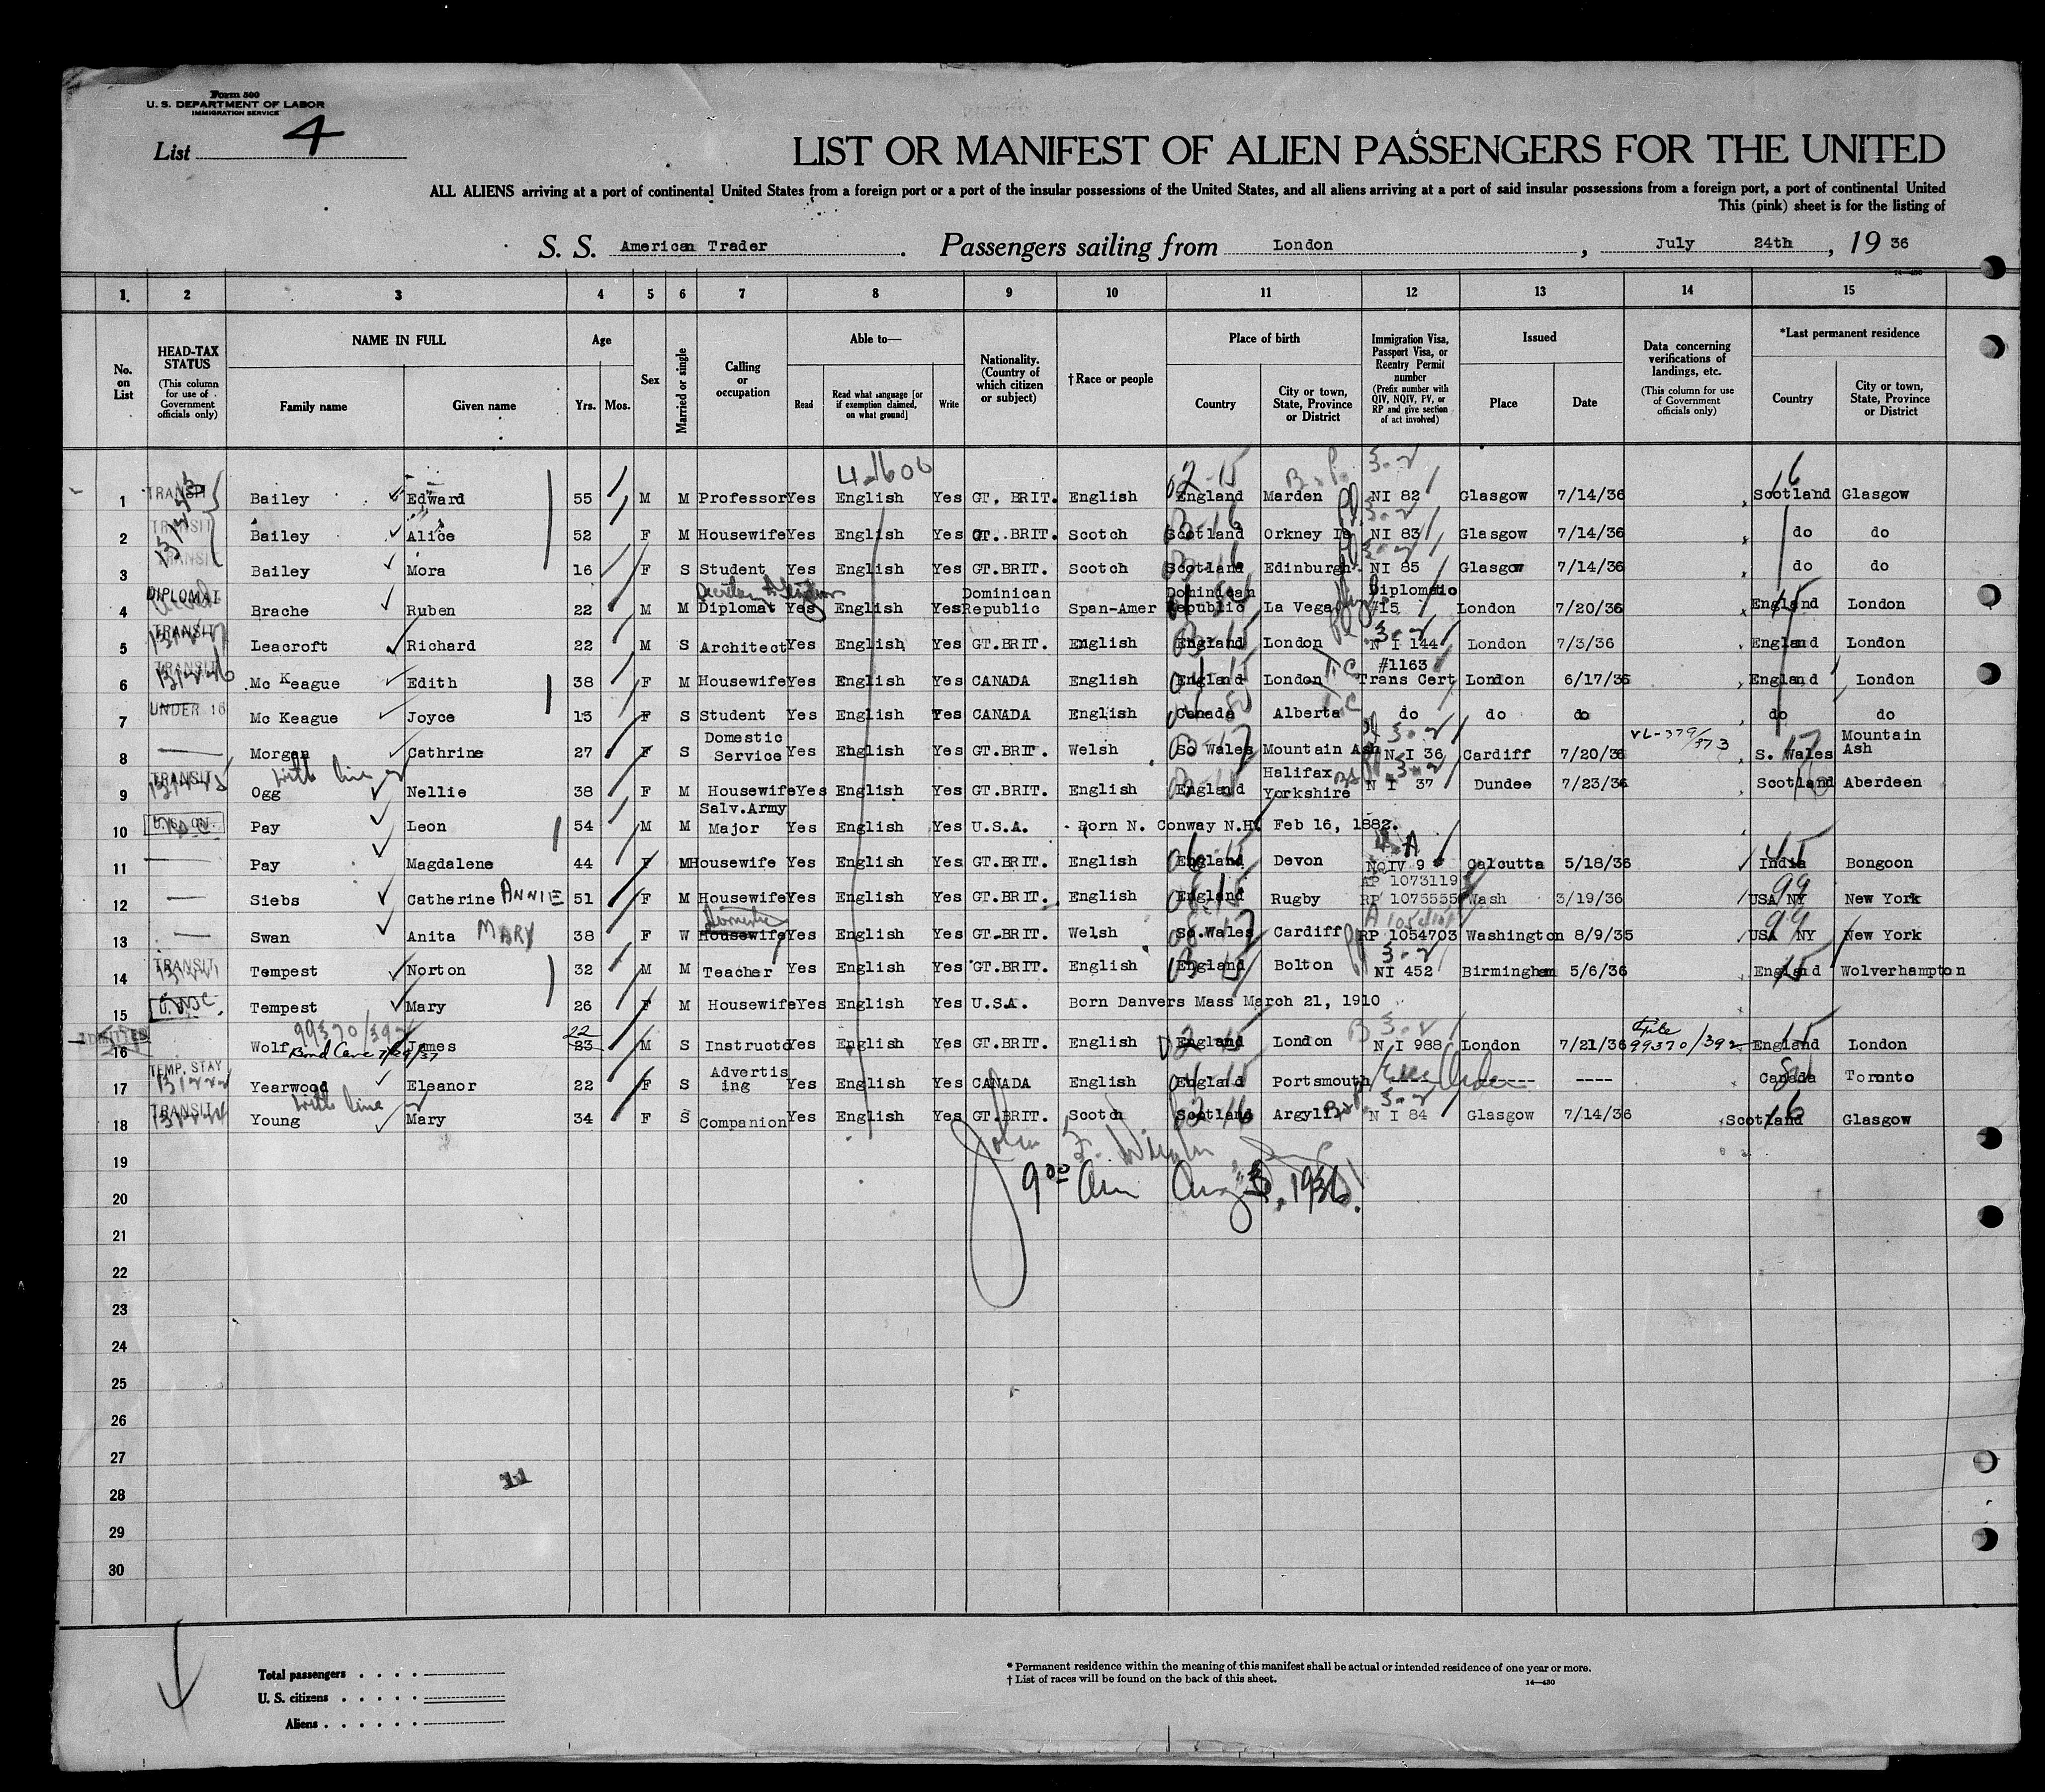 Form 500
U. S. DEPARTMENT OF LABOR
IMMIGRATION SERVICE
List 4
LIST OR MANIFEST OF ALIEN PASSENGERS FOR THE UNITED
ALL ALIENS arriving at a port of continental United States from a foreign port or a port of the insular possessions of the United States, and all aliens arriving at a port of said insular possessions from a foreign port, a port of continental United
This (pink) sheet is for the listing of
S. S. American Trader. Passengers sailing from London, July 24th, 19 36
14—430
1. 2 3 4 5 6 7 8 9 10 11 12 13 14 15
No. on List
HEAD-TAX STATUS (This column for use of Government officials only)
NAME IN FULL Family name Given name
Age Yrs. Mos.
Sex
Married or single
Calling or occupation
Able to— Read Read what language [or if exemption claimed, on what ground] Write
Nationality. (Country of which citizen or subject)
† Race or people
Place of birth Country City or town, State, Province or District
Immigration Visa, Passport Visa, or Reentry Permit number (Prefix number with QIV, NQIV, PV, or RP and give section of act involved)
Issued Place Date
Data concerning verifications of landings, etc. (This column for use of Government officials only)
*Last permanent residence Country City or town, State, Province or District
1 TRANSIT Bailey Edward 55 M M Professor Yes English Yes GT. BRIT. English England Marden 3-2 NI 82 Glasgow 7/14/36 Scotland Glasgow
2 TRANSIT Bailey Alice 52 F M Housewife Yes English Yes GT. BRIT. Scotch Scotland Orkney Is 3-2 NI 83 Glasgow 7/14/36 do do
3 TRANSIT Bailey Mora 16 F S Student Yes English Yes GT.BRIT. Scotch Scotland Edinburgh 3-2 NI 85 Glasgow 7/14/36 do do
4 DIPLOMAT Brache Ruben 22 M M Diplomat Yes English Yes Dominican Republic Span-Amer Dominican Republic La Vega Diplomatic #15 London 7/20/36 England London
5 TRANSIT Leacroft Richard 22 M S Architect Yes English Yes GT.BRIT. English England London 3-2 N I 144 London 7/3/36 England London
6 TRANSIT Mc Keague Edith 38 F M Housewife Yes English Yes CANADA English England London T.C #1163 Trans Cert London 6/17/36 England London
7 UNDER 16 Mc Keague Joyce 13 F S Student Yes English Yes CANADA English Canada Alberta do do do do do
8 Morgan Cathrine 27 F S Domestic Service Yes English Yes GT.BRIT. Welsh So Wales Mountain Ash 3-2 N I 36 Cardiff 7/20/36 VL-379/373 S. Wales Mountain Ash
9 TRANSIT Ogg Nellie 38 F M Housewife Yes English Yes GT.BRIT. English England Halifax Yorkshire 3-2 N I 37 Dundee 7/23/36 Scotland Aberdeen
10 Pay Leon 54 M M Salv.Army Major Yes English Yes U.S.A. Born N. Conway N.H. Feb 16, 1882.
11 Pay Magdalene 44 F M Housewife Yes English Yes GT.BRIT. English England Devon NQIV 9 Calcutta 5/18/36 India Bongoon
12 Siebs Catherine ANNIE 51 F M Housewife Yes English Yes GT.BRIT. English England Rugby RP 1073119 RP 1075555 Wash 3/19/36 USA NY New York
13 Swan Anita MARY 38 F W Domestic Housewife Yes English Yes GT.BRIT. Welsh So.Wales Cardiff RP 1054703 Washington 8/9/35 USA NY New York
14 TRANSIT Tempest Norton 32 M M Teacher Yes English Yes GT.BRIT. English England Bolton 3-2 NI 452 Birmingham 5/6/36 England Wolverhampton
15 Tempest Mary 26 F M Housewife Yes English Yes U.S.A. Born Danvers Mass March 21, 1910
16 ADMITTED 99370/392 Wolf James 22 23 M S Instructo Yes English Yes GT.BRIT. English England London 3-2 N I 988 London 7/21/36 File 99370/392 England London
17 TEMP. STAY Yearwood Eleanor 22 F S Advertis ing Yes English Yes CANADA English England Portsmouth ---- ---- ---- Canada Toronto
18 TRANSIT Young Mary 34 F S Companion Yes English Yes GT.BRIT. Scotch Scotland Argyll 3-2 N I 84 Glasgow 7/14/36 Scotland Glasgow
19
20 9 00 Am Aug 3, 1936.
21
22
23
24
25
26
27
28 11
29
30
Total passengers
U. S. citizens
Aliens
* Permanent residence within the meaning of this manifest shall be actual or intended residence of one year or more.
† List of races will be found on the back of this sheet.
14—430